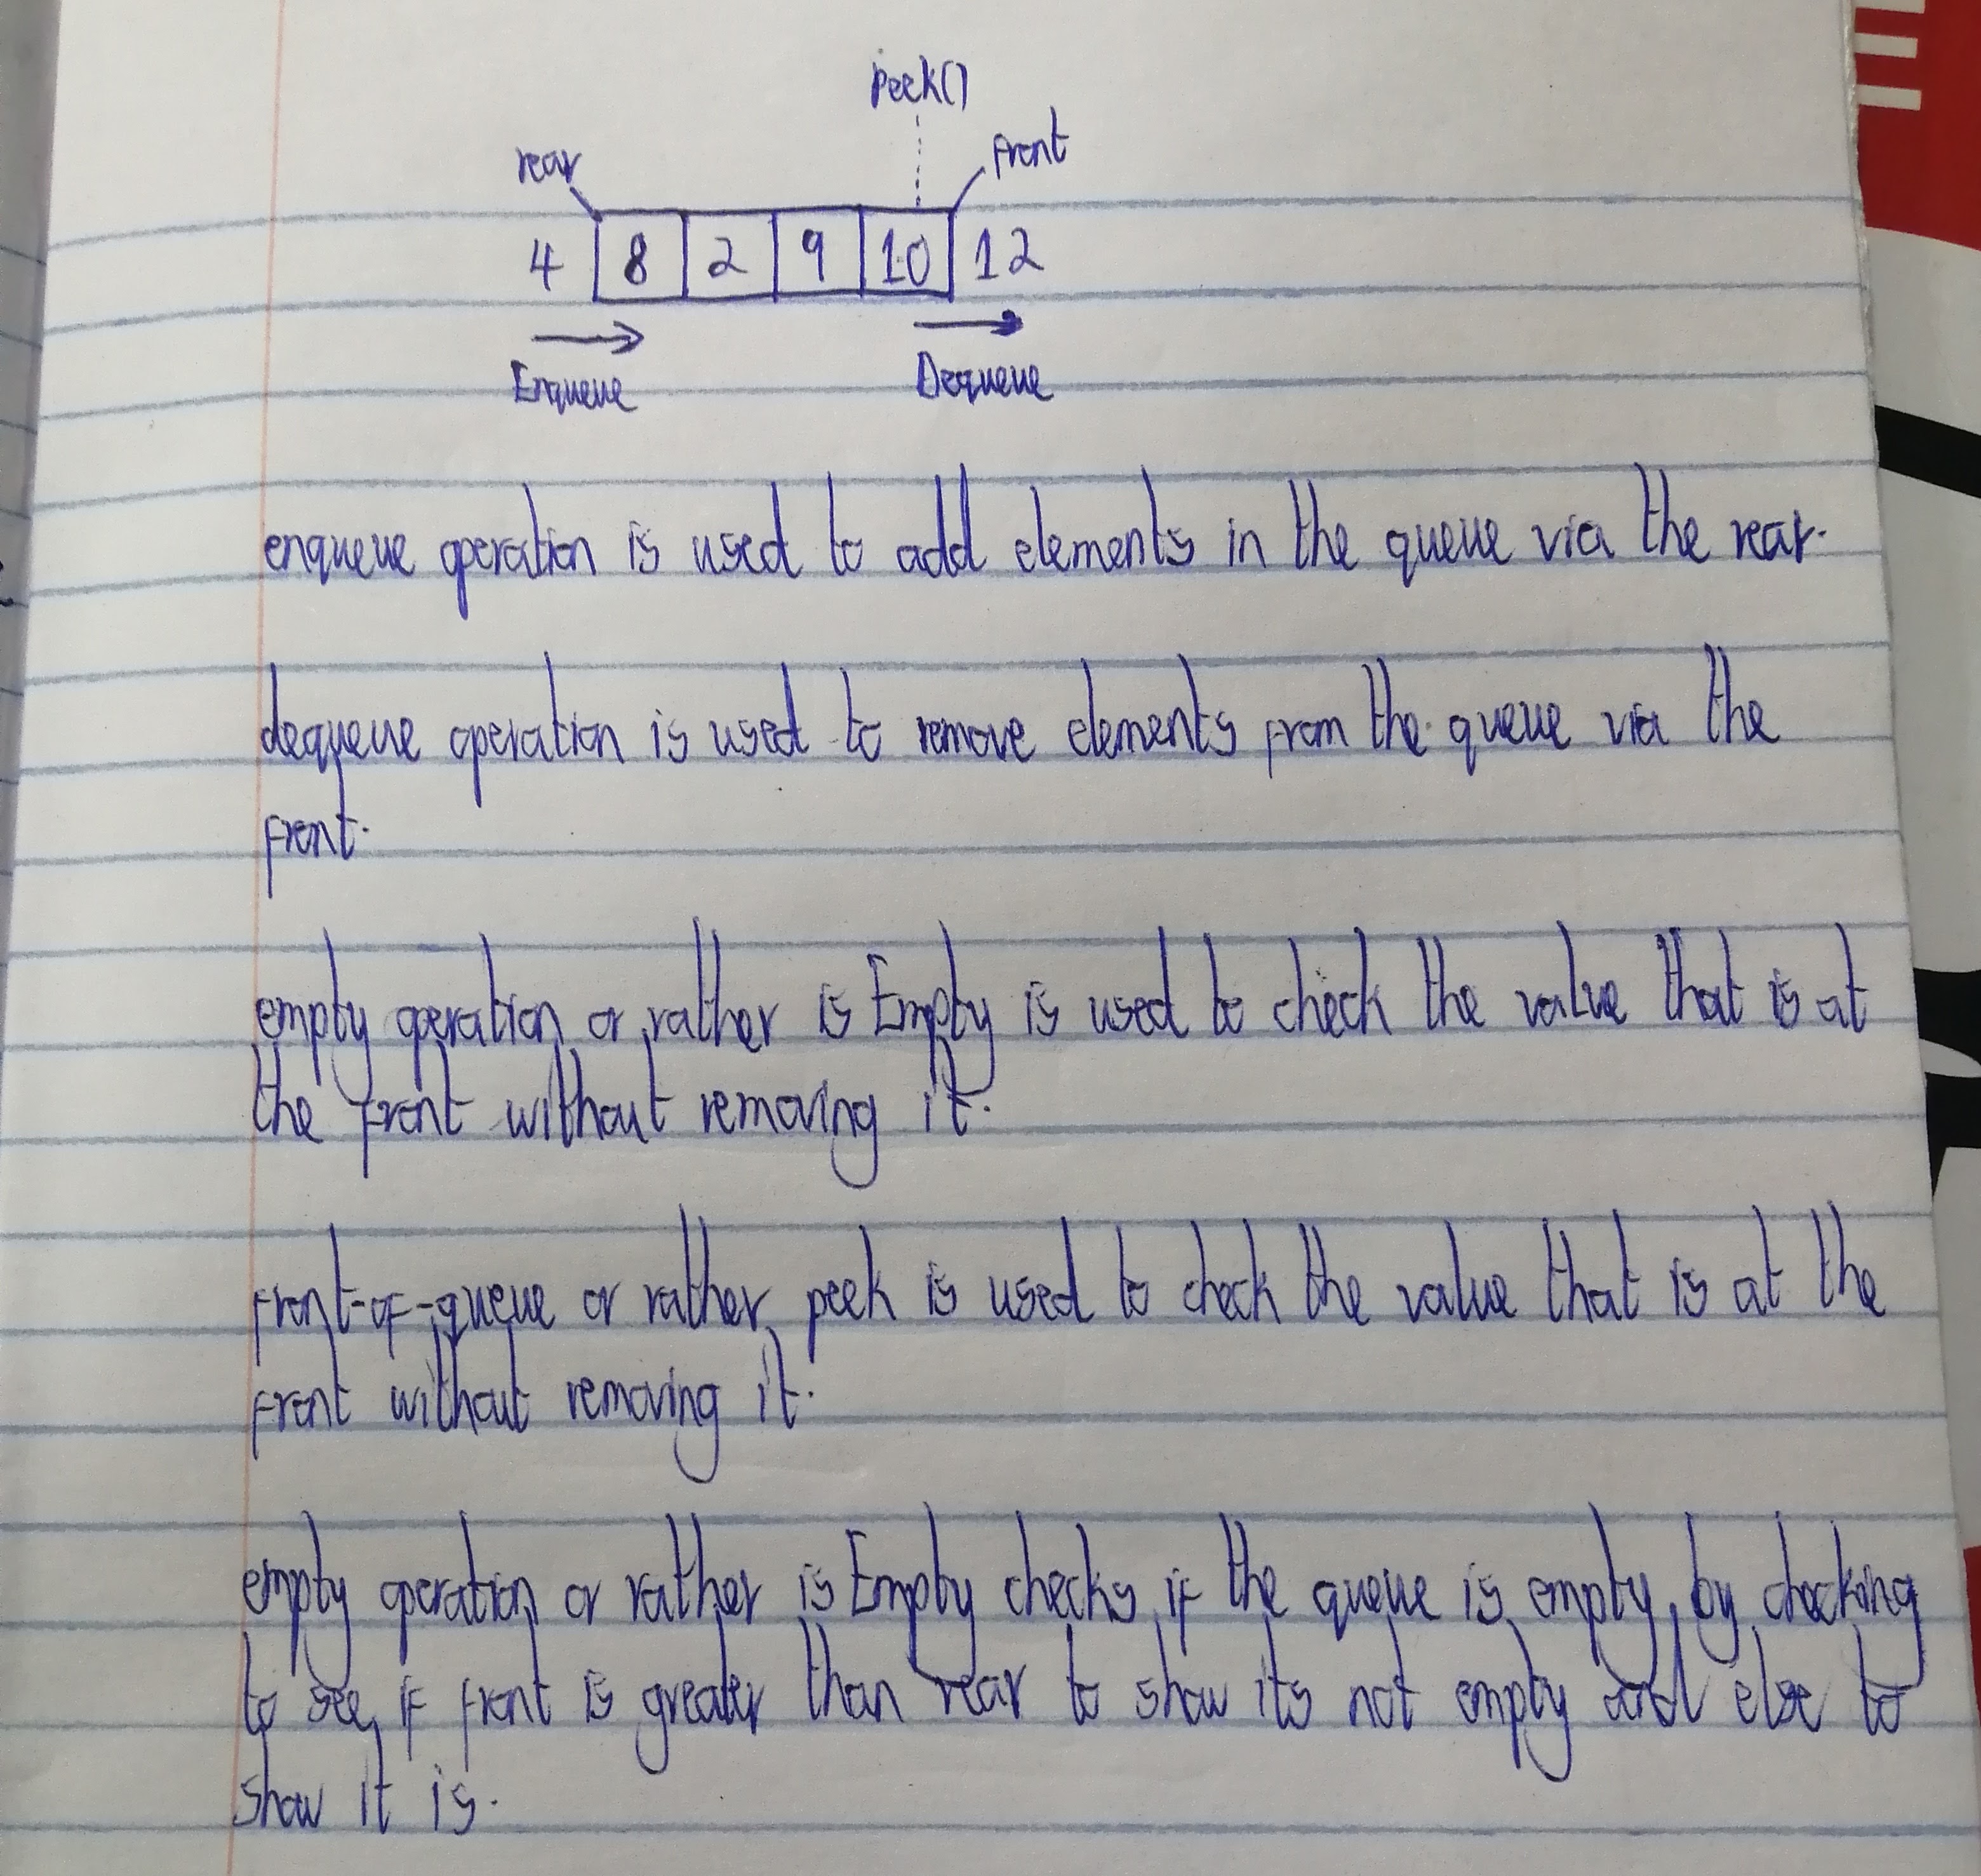 peek()
rear
front
4 8 2 9 10 12
Enqueue
Dequeue
enqueue operation is used to add elements in the queue via the rear.
dequeue operation is used to remove elements from the queue via the
front.
empty operation or rather is Empty is used to check the value that is at
the front without removing it.
front-of-queue or rather peek is used to check the value that is at the
front without removing it.
empty operation or rather is Empty checks if the queue is empty, by checking
to see if front is greater than rear to show its not empty and else to
show it is.